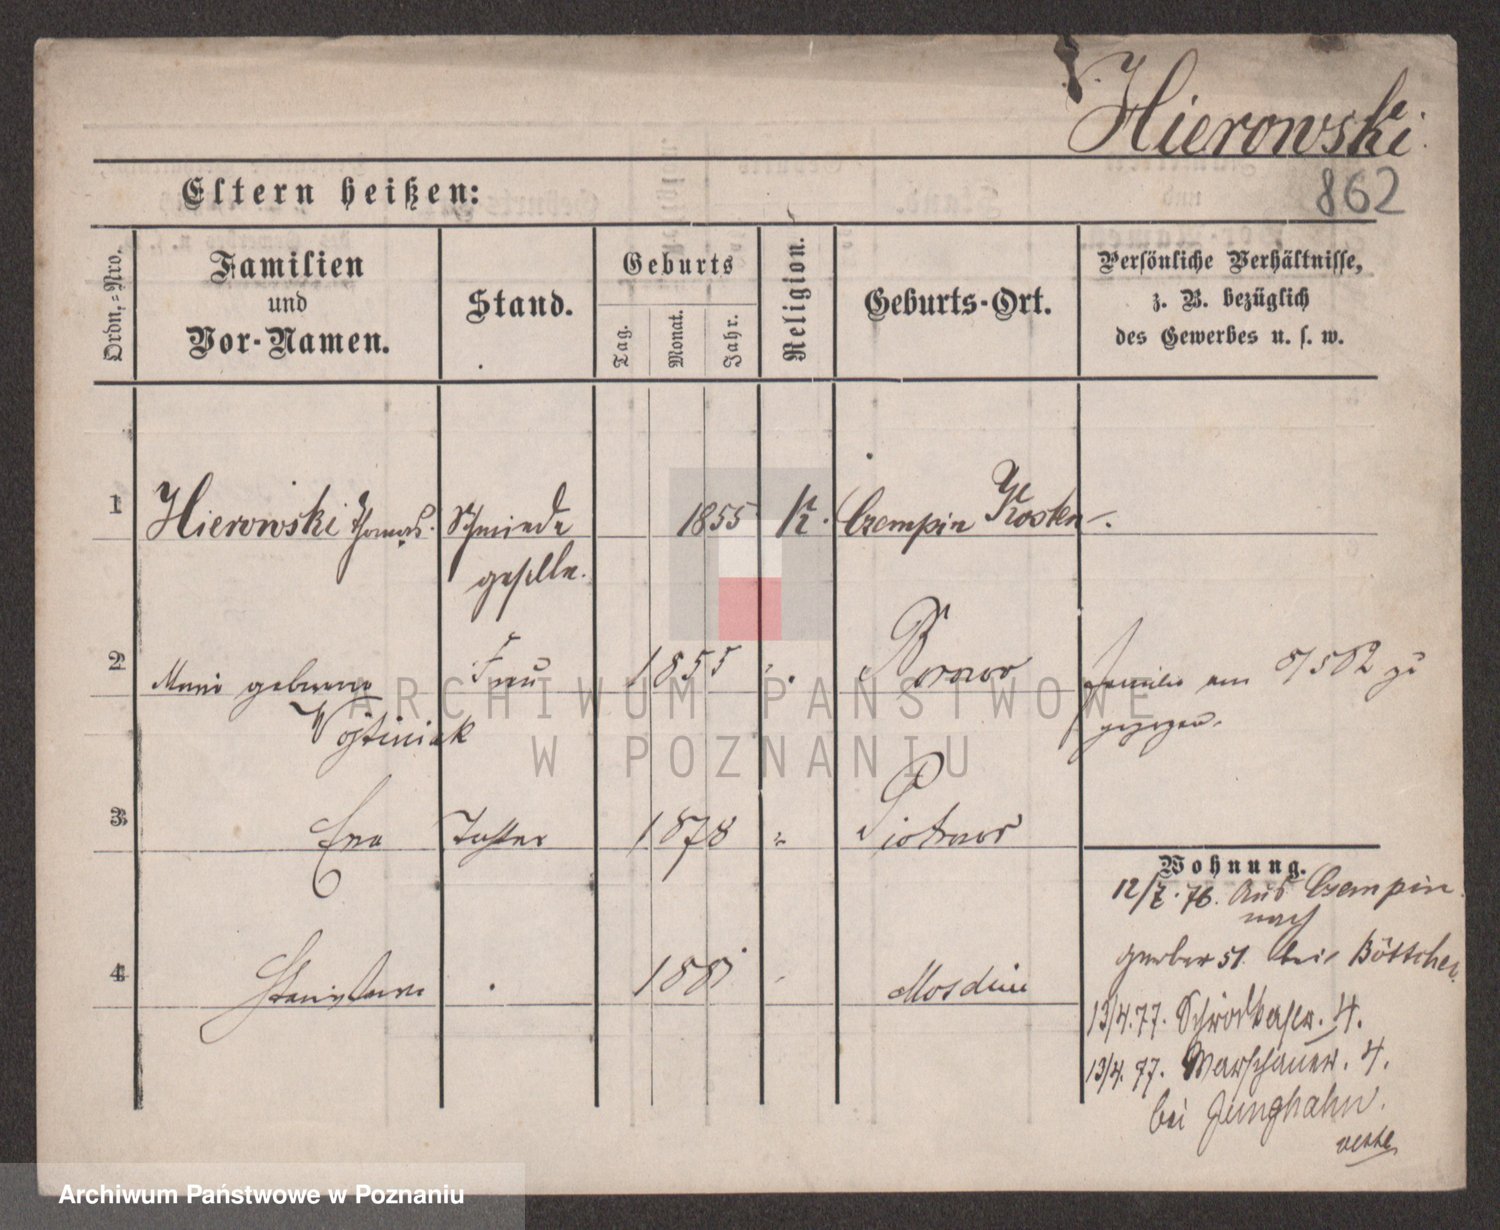 Hierowski
862
Eltern heißen:
Ordn.-Nro.
Familien
und
Vor-Namen.
Stand.
Geburts
Tag.
Monat.
Jahr.
Religion.
Geburts-Ort.
Persönliche Verhältnisse,
z. B. bezüglich
des Gewerbes u. s. w.
1 Hierowski Thomas. Schmiede 1855 K. Czempin Kosten.
geselle.
2 Maria geborene Frau 1855 " Borowo Familie am
gezogen.
3 Eva Tochter 1878 " Piotrowo
4 Stanislawa 1881
Wohnung.
12/7.76. Aus Czempin
nach
Gerber 51. bei Böttcher.
13/4.77. Schrodkastr. 4.
13/4.77. Warschauer. 4.
bei Junghahn.
ARCHIWUM PAŃSTWOWE
W POZNANIU
Archiwum Państwowe w Poznaniu